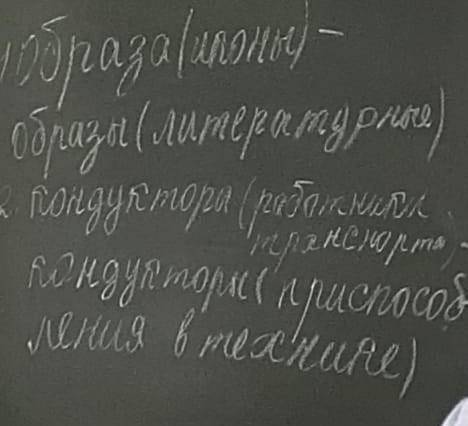 1 Образа (иконы) –
образы (литературные)
2. Кондуктора (работники
транспорта) -
кондукторы (приспособ
ления в технике)